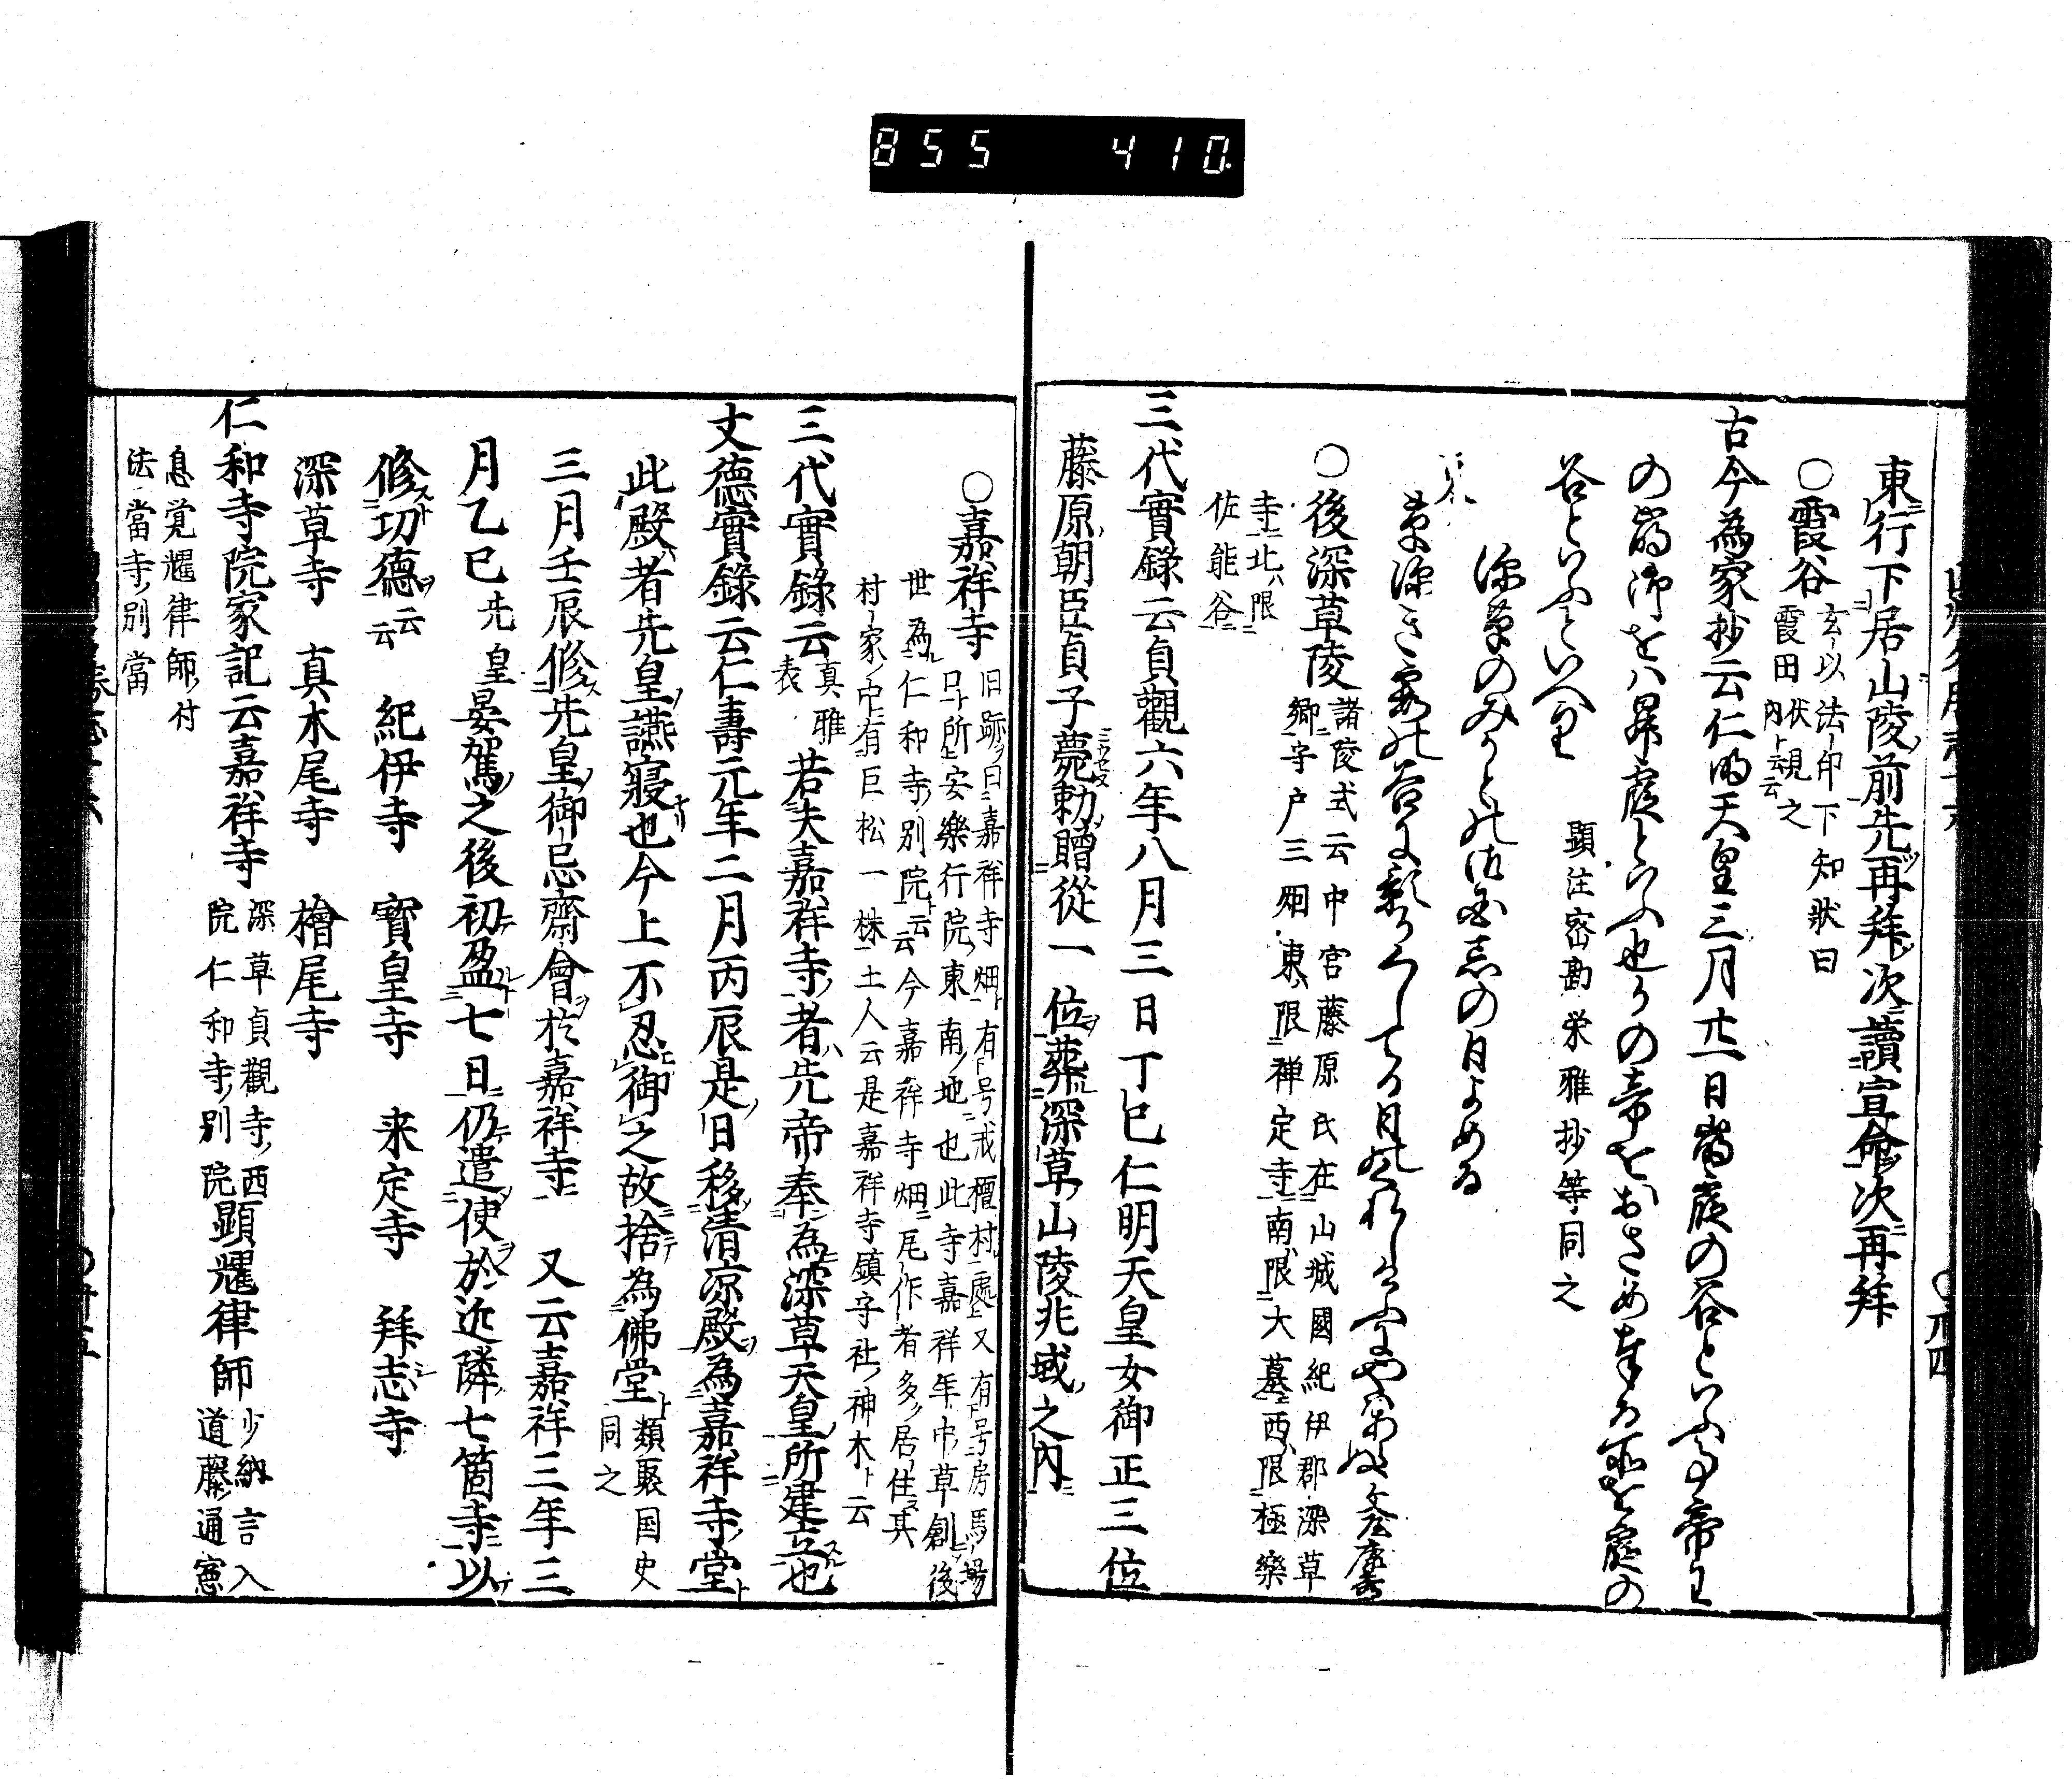 855 410
東行下居山陵前先再拜次讀宣命次再拜
○霞谷
玄以法印下知状曰
霞田伏見之内ト云云
古今為家抄云仁明天皇三月廿一日崩
谷といふといへり
顕注密勘栄雅抄等同之
深草のみかとの御国忌の日よめる
草深き霞の谷に影かくしてる日のくれしけふにやはあらぬ 文屋康秀
○後深草陵
諸陵式云中宮藤原氏在山城國紀伊郡深草
郷守戸三烟東ハ限禅定寺南ハ限大墓西ハ限極樂
寺北ハ限
佐能谷
三代實錄云貞觀六年八月三日丁巳仁明天皇女御正三位
藤原朝臣貞子薨勅贈從一位葬深草山陵兆域之內
○嘉祥寺
旧跡ヲ曰嘉祥寺畑ト有号戒壇村處上又有号房馬場
口ト所安樂行院東南ノ地也此寺嘉祥年中草創後
世為仁和寺別院ト云云今嘉祥寺畑尾作者多居住其
村家中有巨松一株土人云是嘉祥寺鎮守社神木ト云
三代實錄云
真雅
表
若夫嘉祥寺者ハ先帝奉為深草天皇所建立也
文德實錄云仁壽元年二月丙辰是日移清凉殿為嘉祥寺堂
此殿者先皇讌寢也今上不忍御之故捨為佛堂
類聚国史
同之
三月壬辰修先皇御忌齋會於嘉祥寺 又云嘉祥三年三
月乙巳先皇晏駕之後初盈七日仍遣使於近隣七箇寺以
修切德云云 紀伊寺 寳皇寺 来定寺 拜志寺
深草寺 真木尾寺 檜尾寺
仁和寺院家記云嘉祥寺
深草貞觀寺西
院仁和寺別院
顕耀律師
少納言入
道藤通憲
息覚耀律師付
法當寺別當